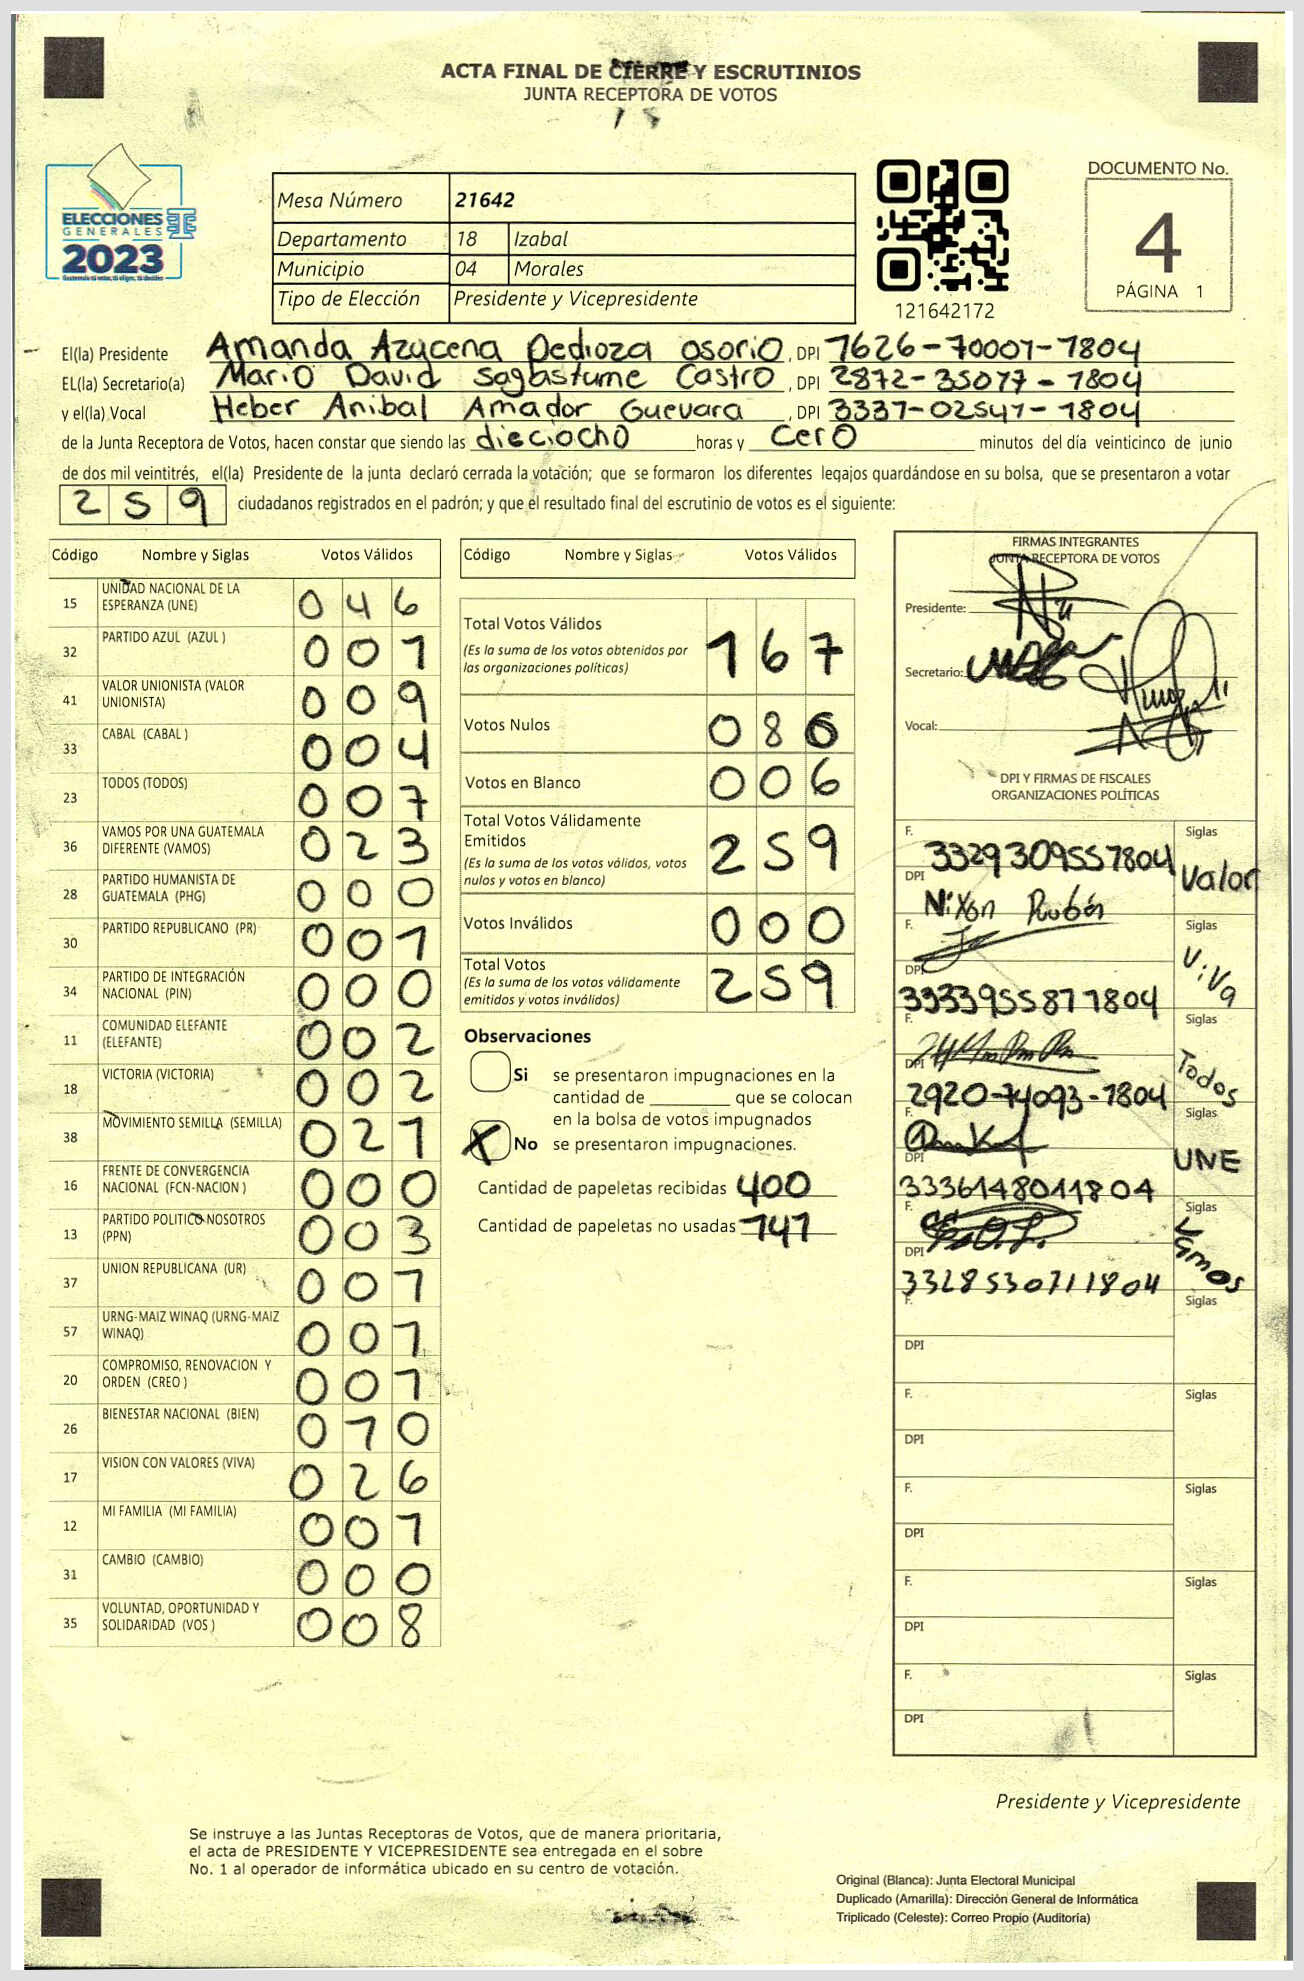 ACTA FINAL DE CIERRE Y ESCRUTINIOS
JUNTA RECEPTORA DE VOTOS
ELECCIONES
GENERALES
2023
Mesa Número 21642
Departamento 18 Izabal
Municipio 04 Morales
Tipo de Elección Presidente y Vicepresidente
121642172
DOCUMENTO No.
4
PÁGINA 1
El(la) Presidente Amanda Azucena Pedroza osorio, DPI 1626-70001-1804
EL(la) Secretario(a) Mario David Sagastume Castro, DPI 2872-35077-1804
y el(la) Vocal Heber Anibal Amador Guevara, DPI 3337-02541-1804
de la Junta Receptora de Votos, hacen constar que siendo las dieciocho horas y cero minutos del día veinticinco de junio
de dos mil veintitrés, el(la) Presidente de la junta declaró cerrada la votación; que se formaron los diferentes legajos guardándose en su bolsa, que se presentaron a votar
259 ciudadanos registrados en el padrón; y que el resultado final del escrutinio de votos es el siguiente:
Código Nombre y Siglas Votos Válidos
15 UNIDAD NACIONAL DE LA ESPERANZA (UNE) 046
32 PARTIDO AZUL (AZUL ) 001
41 VALOR UNIONISTA (VALOR UNIONISTA) 009
33 CABAL (CABAL ) 004
23 TODOS (TODOS) 007
36 VAMOS POR UNA GUATEMALA DIFERENTE (VAMOS) 023
28 PARTIDO HUMANISTA DE GUATEMALA (PHG) 000
30 PARTIDO REPUBLICANO (PR) 001
34 PARTIDO DE INTEGRACIÓN NACIONAL (PIN) 000
11 COMUNIDAD ELEFANTE (ELEFANTE) 002
18 VICTORIA (VICTORIA) 002
38 MOVIMIENTO SEMILLA (SEMILLA) 021
16 FRENTE DE CONVERGENCIA NACIONAL (FCN-NACION ) 000
13 PARTIDO POLITICO NOSOTROS (PPN) 003
37 UNION REPUBLICANA (UR) 001
57 URNG-MAIZ WINAQ (URNG-MAIZ WINAQ) 001
20 COMPROMISO, RENOVACION Y ORDEN (CREO ) 001
26 BIENESTAR NACIONAL (BIEN) 010
17 VISION CON VALORES (VIVA) 026
12 MI FAMILIA (MI FAMILIA) 001
31 CAMBIO (CAMBIO) 000
35 VOLUNTAD, OPORTUNIDAD Y SOLIDARIDAD (VOS ) 008
Código Nombre y Siglas Votos Válidos
Total Votos Válidos 167
(Es la suma de los votos obtenidos por
las organizaciones políticas)
Votos Nulos 086
Votos en Blanco 006
Total Votos Válidamente
Emitidos 259
(Es la suma de los votos válidos, votos
nulos y votos en blanco)
Votos Inválidos 000
Total Votos 259
(Es la suma de los votos válidamente
emitidos y votos inválidos)
Observaciones
Si se presentaron impugnaciones en la
cantidad de ________ que se colocan
en la bolsa de votos impugnados
X No se presentaron impugnaciones.
Cantidad de papeletas recibidas 400
Cantidad de papeletas no usadas 141
FIRMAS INTEGRANTES
JUNTA RECEPTORA DE VOTOS
Presidente:
Secretario:
Vocal:
DPI Y FIRMAS DE FISCALES
ORGANIZACIONES POLÍTICAS
F. 3329309551804 Siglas Valor
DPI Nixon Rubén
F. Siglas ViVa
DPI 3333955871804
F. Siglas Todos
DPI 2920-74093-1804
F. Siglas UNE
DPI 3336148011804
F. Siglas Vamos
DPI 3328530711804
F. Siglas
DPI
F. Siglas
DPI
F. Siglas
DPI
F. Siglas
DPI
F. Siglas
DPI
Presidente y Vicepresidente
Se instruye a las Juntas Receptoras de Votos, que de manera prioritaria,
el acta de PRESIDENTE Y VICEPRESIDENTE sea entregada en el sobre
No. 1 al operador de informática ubicado en su centro de votación.
Original (Blanca): Junta Electoral Municipal
Duplicado (Amarilla): Dirección General de Informática
Triplicado (Celeste): Correo Propio (Auditoría)